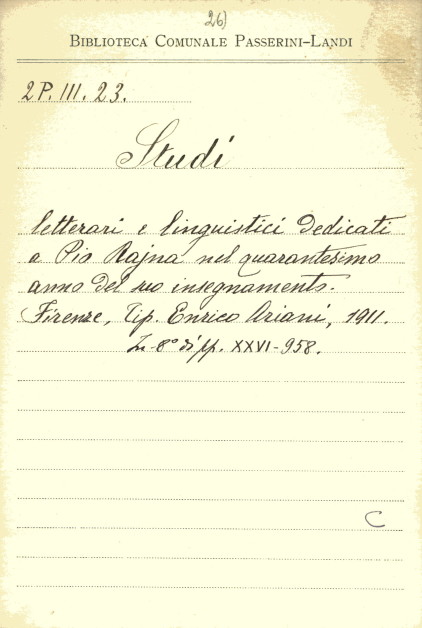 26)
BIBLIOTECA COMUNALE PASSERINI-LANDI
2P. III. 23.
Studi
letterari e linguistici dedicati
a Pio Rajna nel quarantesimo
anno del suo insegnamento.
Firenze, Tip. Enrico Ariani, 1911.
In-8° di pp. XXVI-958.
C